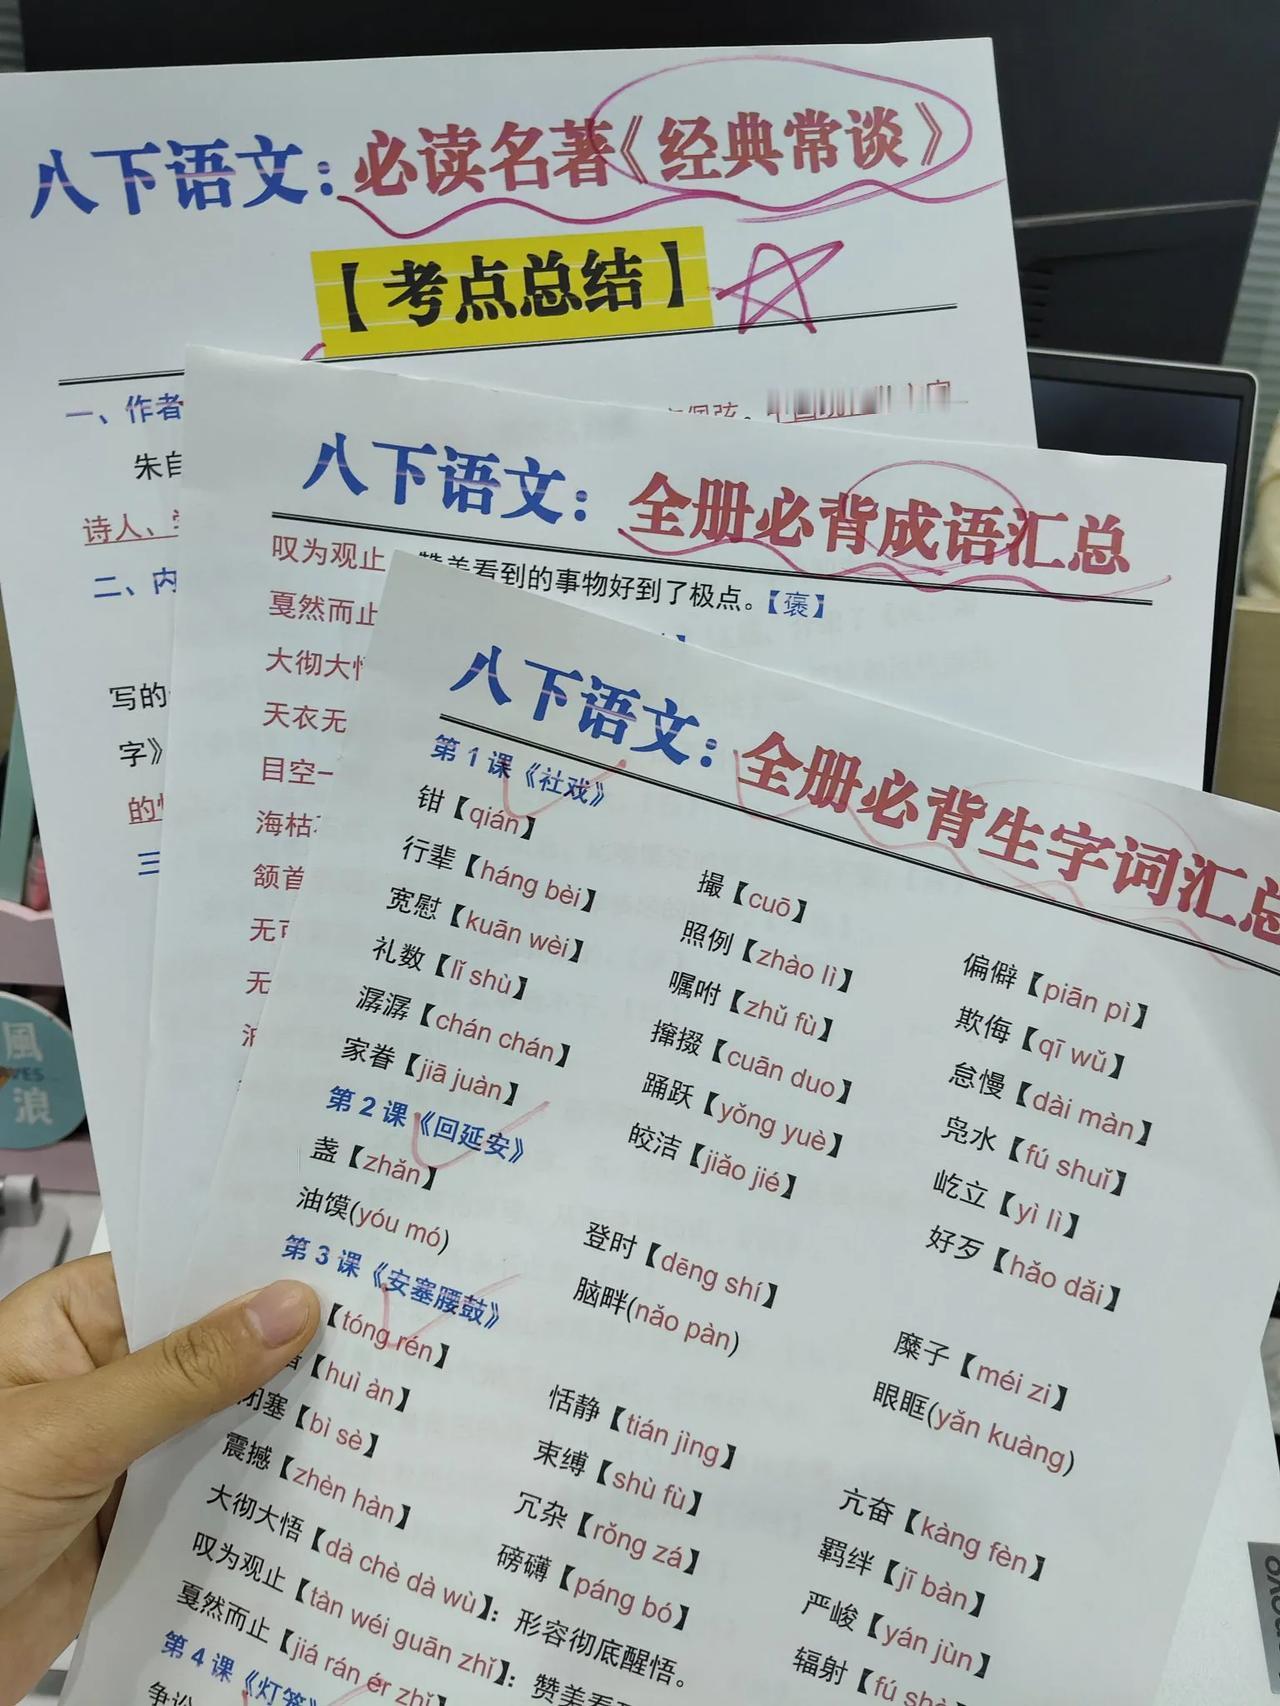 八下语文：必读名著《经典常谈》
【考点总结】
一、作者
朱自
诗人、
二、内
写的
字》
的
三
八下语文：全册必背成语汇总
叹为观止 赞美看到的事物好到了极点。【褒】
戛然而止
大彻大悟
天衣无
目空一
海枯
颔首
无
无
八下语文：全册必背生字词汇总
第1课《社戏》
钳【qián】 撮【cuō】 偏僻【piān pì】
行辈【háng bèi】 照例【zhào lì】 欺侮【qī wǔ】
宽慰【kuān wèi】 嘱咐【zhǔ fù】 怠慢【dài màn】
礼数【lǐ shù】 撺掇【cuān duo】 凫水【fú shuǐ】
潺潺【chán chán】 踊跃【yǒng yuè】 屹立【yì lì】
家眷【jiā juàn】 皎洁【jiǎo jié】 好歹【hǎo dǎi】
第2课《回延安》
盏【zhǎn】 登时【dēng shí】 糜子【méi zi】
油馍(yóu mó) 脑畔(nǎo pàn) 眼眶(yǎn kuàng)
第3课《安塞腰鼓》
【tóng rén】 恬静【tián jìng】 亢奋【kàng fèn】
【huì àn】 束缚【shù fù】 羁绊【jī bàn】
闭塞【bì sè】 冗杂【rǒng zá】 严峻【yán jùn】
震撼【zhèn hàn】 磅礴【páng bó】 辐射【fú shè
大彻大悟【dà chè dà wù】：形容彻底醒悟。
叹为观止【tàn wéi guān zhǐ】：赞美看
戛然而止【jiá rán ér zhǐ】
第4课《灯笼》
争讼
風
浪